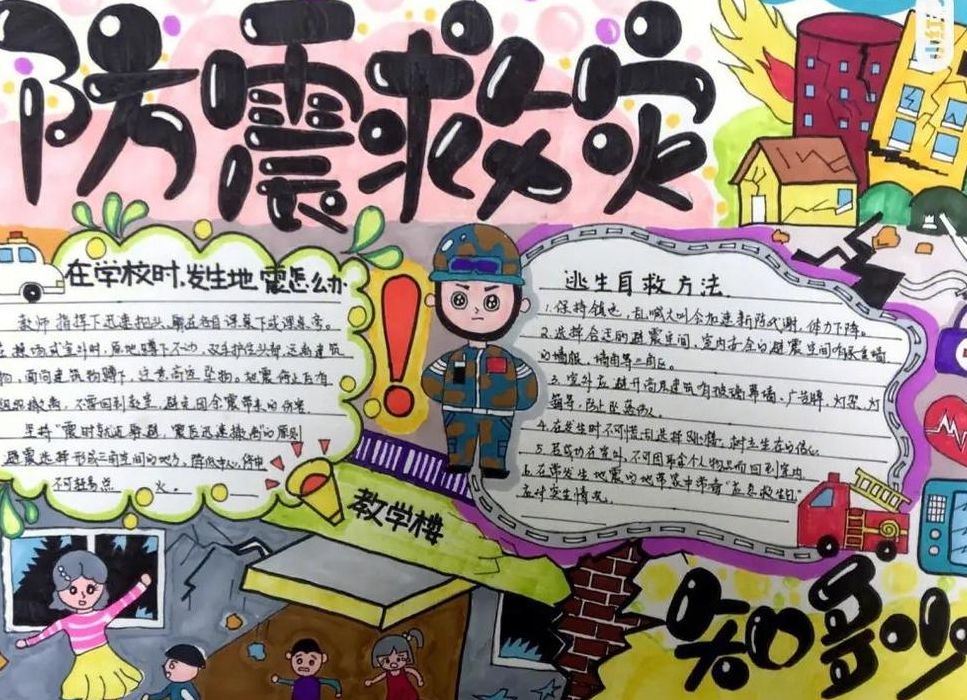 防震救灾
小红书
在学校时,发生地震怎么办
教师指挥下迅速抱头、躲在各自课桌下或课桌旁。
在操场或室外时,原地蹲下不动,双手护住头部,远离建筑
物,面向建筑物蹲下,注意高空坠物。如震停止后有
组织撤离,不要回到教室,避免因余震带来的伤害
坚持"震时就近躲避,震后迅速撤离"的原则
避震选择形成三角空间的地方,降低中心,停电
不可轻易点 火。
逃生自救方法
1.保持镇定,乱喊大叫会加速新陈代谢,体力下降。
2.选择合适的避震空间,室内安全的避震空间有承重墙
的墙根、墙角等三角区。
3.室外应避开高层建筑有玻璃幕墙、广告牌、灯架、灯
箱等,防止坠落伤人。
4.在发生时不可慌乱选择跳楼,树立生存的信心
5.若成功在室外,不可因取个人物品而回到室内
6.在常发生地震的地带家中常备"应急救生包"
应对突生情况。
教学楼
知多少